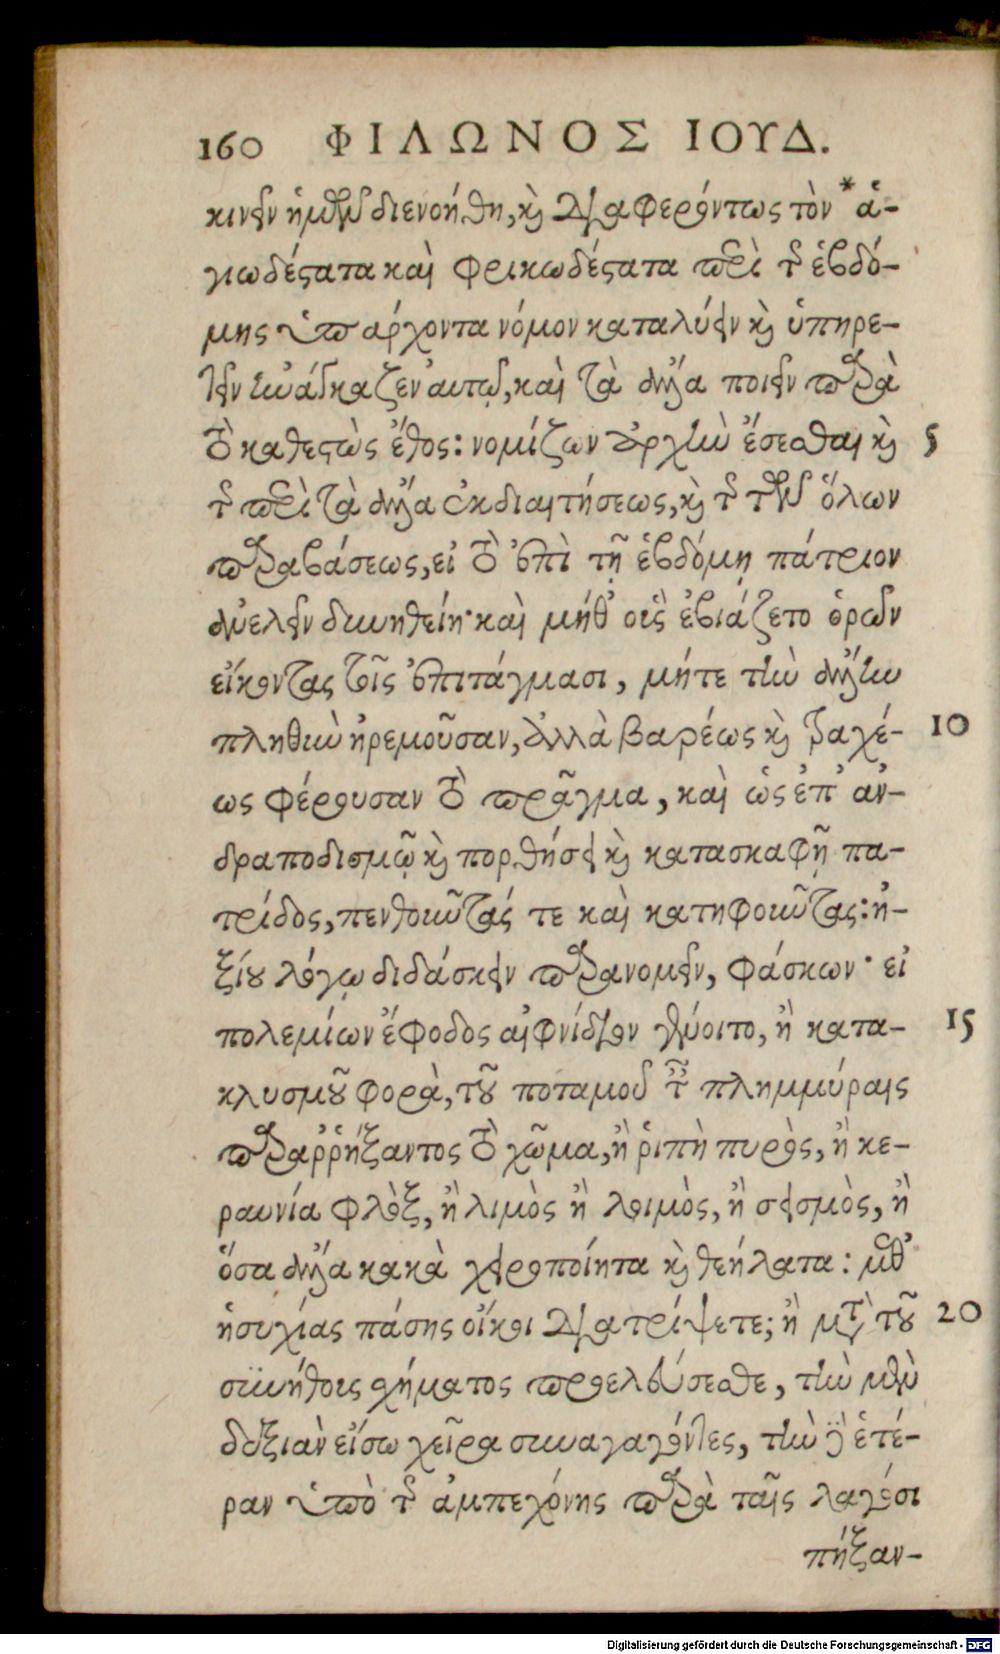 160 ΦΙΛΩΝΟΣ ΙΟΥΔ.
κινεῖν ἡμῶν διενοήθη, καὶ διαφερόντως τὸν * ἁ-
γιωδέστατα καὶ φρικωδέστατα περὶ τῆς ἑβδό-
μης ὑπάρχοντα νόμον καταλύειν καὶ ὑπηρε-
τεῖν ἠνάγκαζεν αὐτῷ, καὶ τὰ ἄλλα ποιεῖν παρὰ
τὸ καθεστὼς ἔθος: νομίζων ἀρχὴν ἔσεσθαι καὶ 5
τῆς περὶ τὰ ἄλλα ἐκδιαιτήσεως, καὶ τῆς τῶν ὅλων
παραβάσεως, εἰ τὸ ἐπὶ τῇ ἑβδόμῃ πάτριον
ἀνελεῖν δυνηθείη· καὶ μήθ' οὓς ἐβιάζετο ὁρῶν
εἴκοντας τοῖς ἐπιτάγμασι, μήτε τὴν ἄλλην
πληθὺν ἠρεμοῦσαν, ἀλλὰ βαρέως καὶ τραχέ- 10
ως φέρουσαν τὸ πρᾶγμα, καὶ ὡς ἐπ' ἀν-
δραποδισμῷ καὶ πορθήσει καὶ κατασκαφῇ πα-
τρίδος, πενθοῦντάς τε καὶ κατηφοῦντας: ἠ-
ξίου λόγῳ διδάσκειν παρανομεῖν, φάσκων· εἰ
πολεμίων ἔφοδος αἰφνίδιον γένοιτο, ἢ κατα- 15
κλυσμοῦ φορὰ, τοῦ ποταμοῦ ταῖς πλημμύραις
παραῤῥήξαντος τὸ χῶμα, ἢ ῥιπὴ πυρὸς, ἢ κε-
ραυνία φλὸξ, ἢ λιμὸς ἢ λοιμὸς, ἢ σεισμὸς, ἢ
ὅσα ἄλλα κακὰ χειροποίητα καὶ θεήλατα: μεθ'
ἡσυχίας πάσης οἴκοι διατρίψετε; ἢ μετὰ τοῦ 20
συνήθους σχήματος προελεύσεσθε, τὴν μὲν
δεξιὰν εἴσω χεῖρα συναγαγόντες, τὴν δὲ ἑτέ-
ραν ὑπὸ τῆς ἀμπεχόνης παρὰ ταῖς λαγόσι
πήξαν-
Digitalisierung gefördert durch die Deutsche Forschungsgemeinschaft - DFG